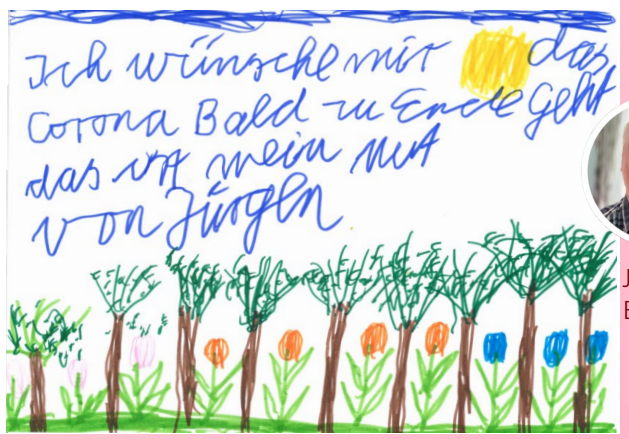 Ich wünsche mir das
Corona Bald zu Ende Geht
das ist mein Mut
von Jürgen
J